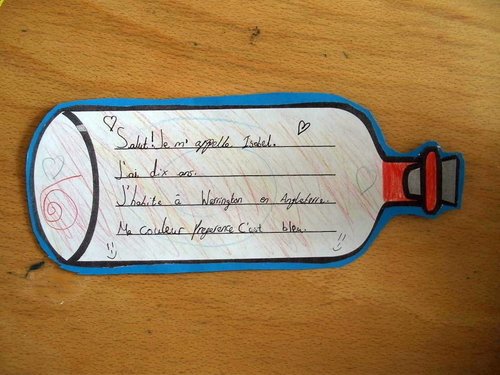 Salut! Je m'appelle Isabel.
J'ai dix ans.
J'habite à Warrington en Angleterre.
Ma couleur preference C'est bleu.